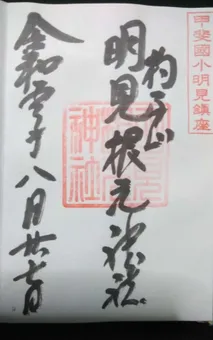 甲斐國小明見鎮座
杓子山
明見根元神社
神社
令和庚子八月廿七日